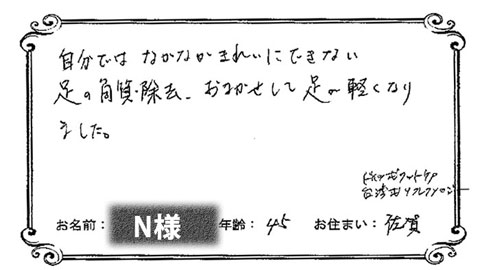 自分では なかなかきれいにできない
足の角質除去、おまかせして足が軽くなり
ました。
ドイツ式フットケア
台湾式リフレクソロジー
お名前： N様 年齢： 45 お住まい： 佐賀